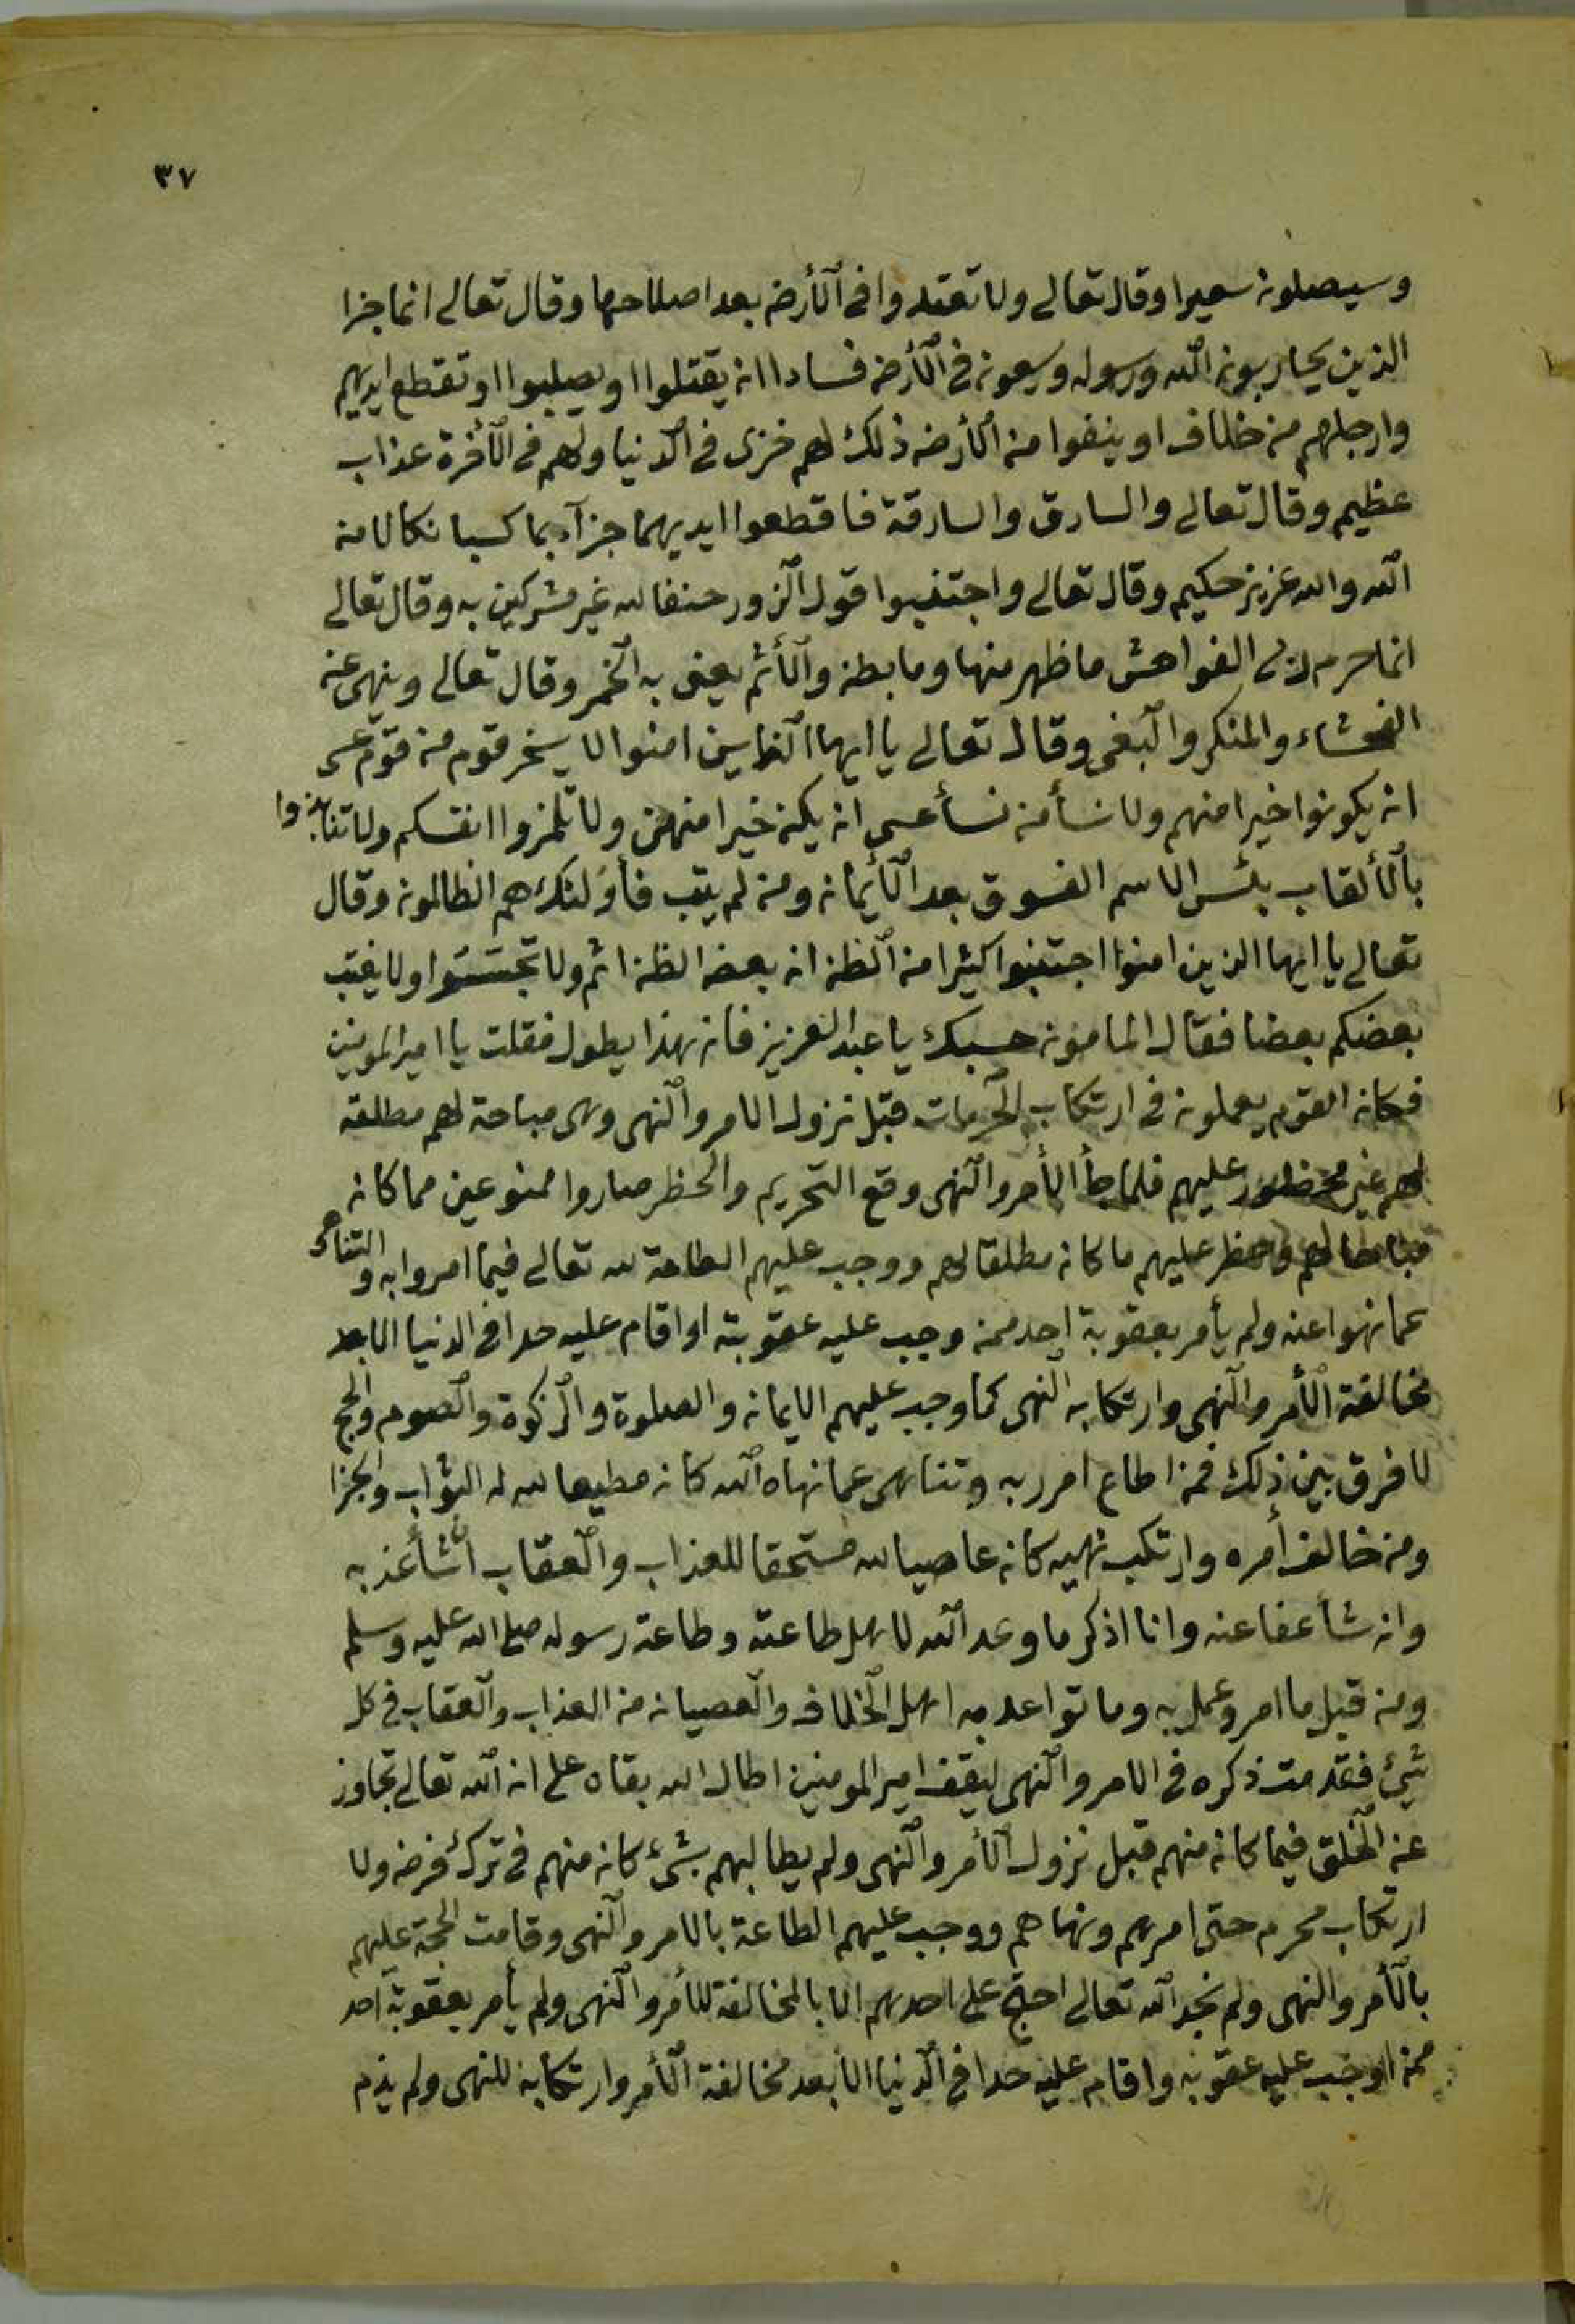 ٣٧
وسيصلون سعيرا وقال تعالى ولا تعتدوا في الأرض بعد اصلاحها وقال تعالى انما جزا
الذين يحاربون الله ورسوله ويسعون في الأرض فسادا ان يقتلوا او يصلبوا او تقطع ايديهم
وارجلهم من خلاف او ينفوا من الأرض ذلك لهم خزى في الدنيا ولهم في الأخرة عذاب
عظيم وقال تعالى والسارق والسارقة فاقطعوا ايديهما جزآء بما كسبا نكالا من
الله والله عزيز حكيم وقال تعالى واجتنبوا قول الزور حنفا لله غير مشركين به وقال تعالى
انما حرم ربى الفواحش ما ظهر منها وما بطن والأثم يعنى به الخمر وقال تعالى وينهى عن
الفحشاء والمنكر والبغى وقال تعالى يا ايها الذين امنوا لا يسخر قوم من قوم عسى
ان يكونوا خيرا منهم ولا نسأ من نسأ عسى ان يكن خيرا منهن ولا تلمزوا انفسكم ولا تنابزوا
بالألقاب بئس الاسم الفسوق بعد الأيمان ومن لم يتب فأولئك هم الظالمون وقال
تعالى يا ايها الذين امنوا اجتنبوا كثيرا من الظن ان بعض الظن اثم ولا تجسسوا ولا يغتب
بعضكم بعضا فقال المامون حسبك يا عبد العزيز فان هذا يطول فقلت يا امير المومنين
فكان القوم يعملون في ارتكاب المحرمات قبل نزول الامر والنهى وهى مباحة لهم مطلقة
لهم غير محظور عليهم فلما جأ الأمر والنهى وقع التحريم والحظر صاروا ممنوعين مما كان
مباحا لهم وحظر عليهم ما كان مطلقا لهم ووجب عليهم الطاعة لله تعالى فيما امروا به والتناهى
عما نهوا عنه ولم يأمر بعقوبة احد ممن وجب عليه عقوبته او اقام عليه حدا في الدنيا الا بعد
مخالفة الأمر والنهى وارتكابه النهى كما وجب عليهم الايمان والصلوة والزكوة والصوم والحج
لا فرق بين ذلك فمن اطاع امر ربه وتناهى عما نهاه الله كان مطيعا لله له الثواب والجزا
ومن خالف أمره وارتكب نهيه كان عاصيا لله مستحقا للعذاب والعقاب ان شأ عذبه
وان شأ عفا عنه وانا اذكر ما وعد الله لاهل طاعته وطاعة رسوله صلى الله عليه وسلم
ومن قبل ما امر وعمل به وما تواعد به اهل الخلاف والعصيان من العذاب والعقاب في كل
شيئ فقدمت ذكره في الامر والنهى ليقف امير المومنين اطال الله بقاه على ان الله تعالى تجاوز
عن الخلق فيما كان منهم قبل نزول الأمر والنهى ولم يطالبهم بشئ كان منهم في ترك فرض ولا
ارتكاب محرم حتى امرهم ونهاهم ووجب عليهم الطاعة بالامر والنهى وقامت الحجة عليهم
بالأمر والنهى ولم نجد الله تعالى احتج على احدهم الا بالمخالفة للأمر والنهى ولم يأمر بعقوبة احد
ممن اوجب عليه عقوبه واقام عليه حدا في الدنيا الا بعد مخالفة الأمر وارتكابه للنهى ولم يذم